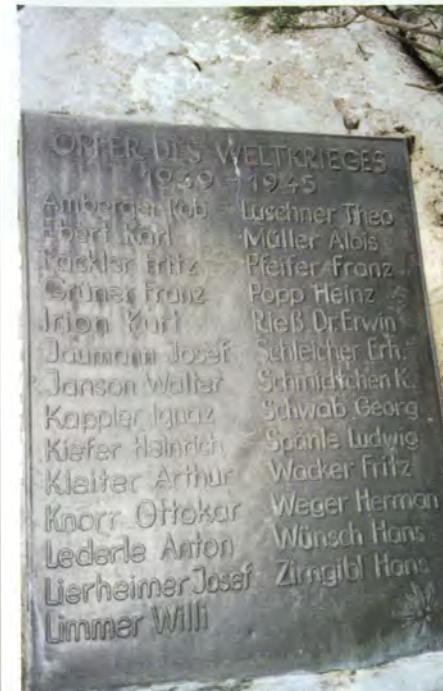 OPFER DES WELTKRIEGES
1939 - 1945
Amberger Rob.
Ebert Karl
Fackler Fritz
Grüner Franz
Irion Kurt
Jaumann Josef
Janson Walter
Kappler Ignaz
Kiefer Heinrich
Kleiter Arthur
Knörr Ottokar
Lederle Anton
Lierheimer Josef
Limmer Willi
Luschner Theo
Müller Alois
Pfeifer Franz
Popp Heinz
Rieß Dr. Erwin
Schleicher Erh.
Schmidtchen K.
Schwab Georg
Spänle Ludwig
Wacker Fritz
Weger Herman
Wünsch Hans
Zirngibl Hans